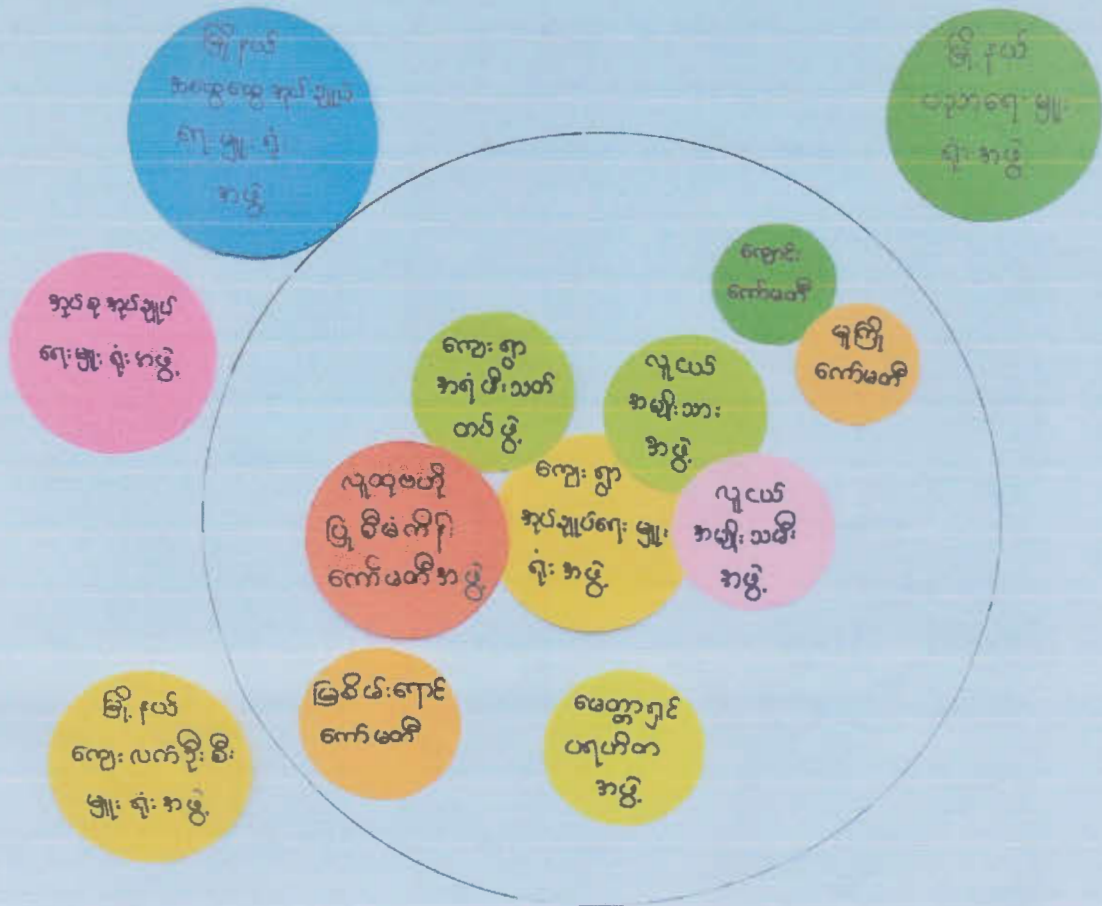 မြို့နယ်
အထွေထွေအုပ်ချုပ်
ရေးမှူးရုံး
အဖွဲ့
မြို့နယ်
ပညာရေးမှူး
ရုံးအဖွဲ့
အုပ်စုအုပ်ချုပ်
ရေးမှူးရုံးအဖွဲ့
ကျောင်း
ကော်မတီ
မူကြို
ကော်မတီ
ကျေးရွာ
အရံမီးသတ်
တပ်ဖွဲ့
လူငယ်
အမျိုးသား
အဖွဲ့
လူထုဗဟို
ပြုစီမံကိန်း
ကော်မတီအဖွဲ့
ကျေးရွာ
အုပ်ချုပ်ရေးမှူး
ရုံးအဖွဲ့
လူငယ်
အမျိုးသမီး
အဖွဲ့
မြို့နယ်
ကျေးလက်ဦးစီး
မှူးရုံးအဖွဲ့
မြစိမ်းရောင်
ကော်မတီ
မေတ္တာရှင်
ပရဟိတ
အဖွဲ့